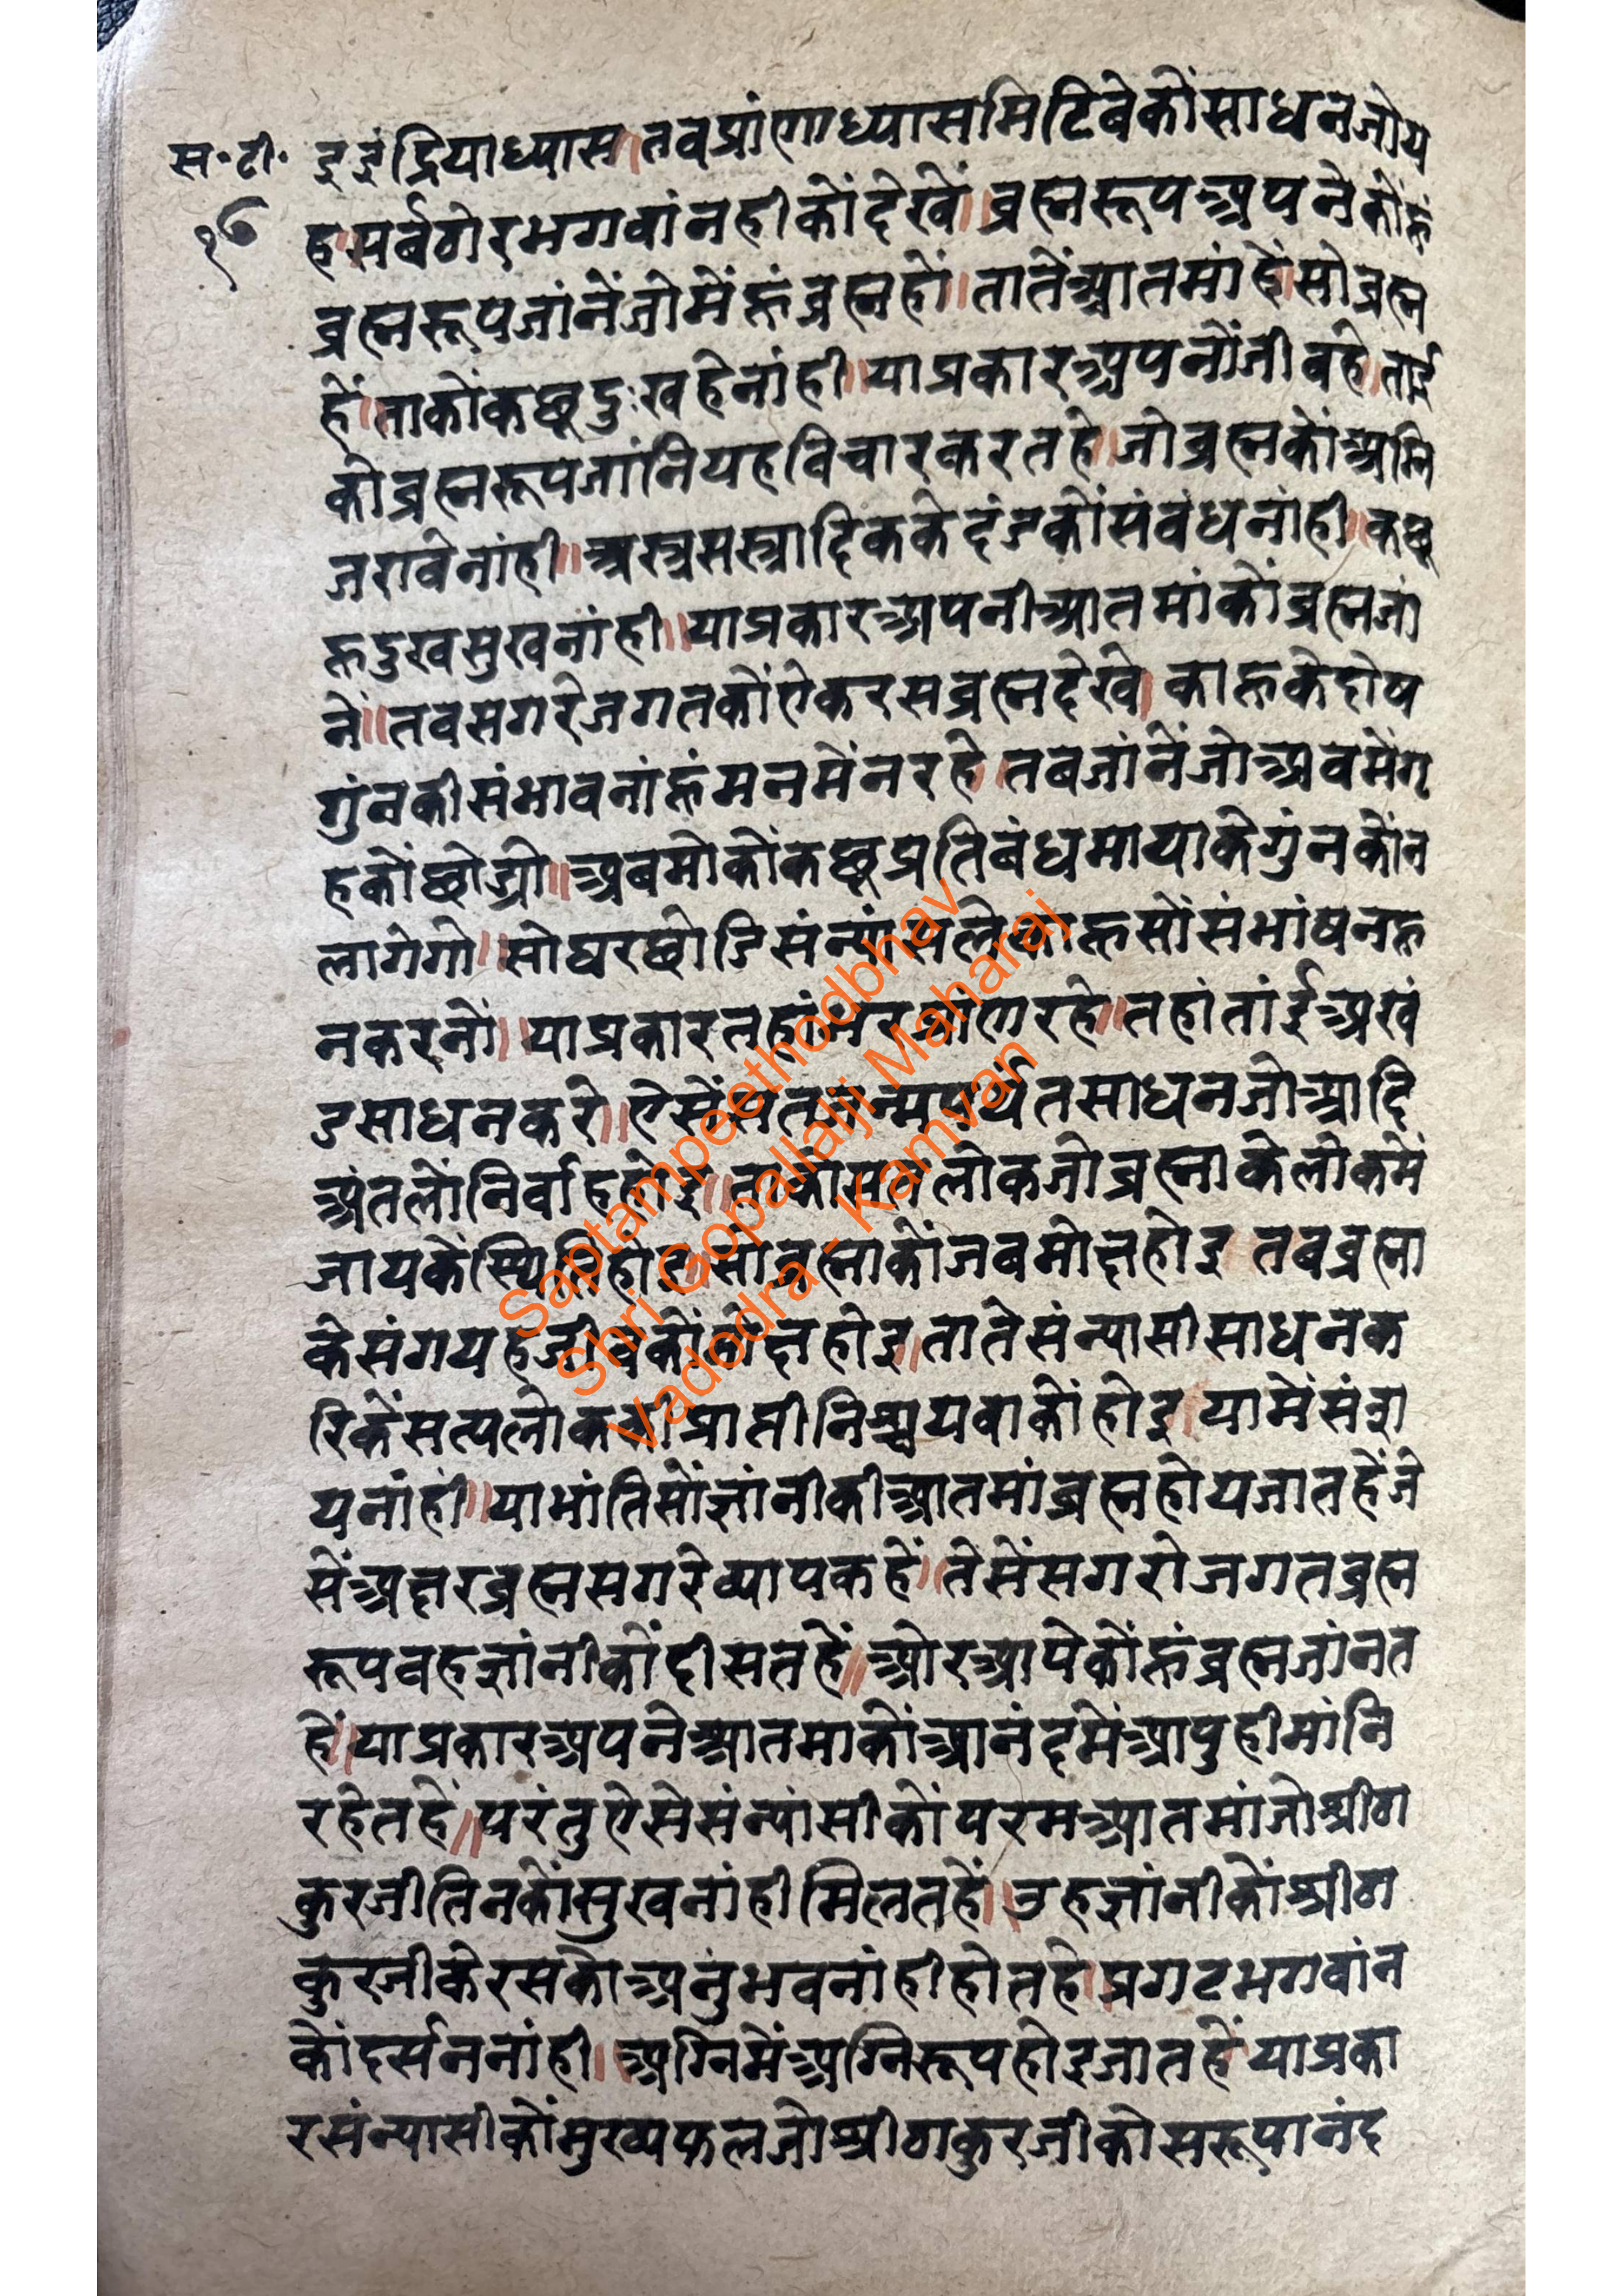 स॰टी॰
१७
इइंद्रियाध्यास।तवप्रांणाध्यासमिटिबेकोंसाधनजोय
ह।सर्बठोरभगवांनहीकोंदेखें।।ब्रह्मरूपअपनेकोंहूं
ब्रह्मरूपजांनेंजोमेंहूंब्रह्महों।।तातेंआतमांहें।सोब्रह्म
हें।ताकोंकछूदुःखहेनांही।।याप्रकारअपनोंजीवहे।ताई
कोब्रह्मरूपजांनियहविचारकरतहे।जोब्रह्मकोंअग्नि
जरावेनांही।।अस्त्रसस्त्रादिककेदंडकोंसंवंधनांही।कछू
हूदुखसुखनांही।।याप्रकारअपनीआतमांकोंब्रह्मजां
नें।।तवसगरेजगतकोंऐकरसब्रह्मदेखे।काहूकेदोष
गुंनकीसंभावनांहूंमनमेंनरहे।तबजांनेंजोअवमेंगृ
हकोंछोड्यो।।अबमोकोंकछूप्रतिबंधमायाकेगुंनकोंन
लागेगो।।सोघरछोडिसंन्यांसलेकाहूसोंसंभांषनहू
नकरनों।।याप्रकारतहांभरप्रांणरहे।।तहांतांईअखं
डसाधनकरे।।ऐसेंसतजन्मपर्यंतसाधनजोआदि
अंतलोंनिर्वाहहोइ।।ताकोसत्यलोकजोब्रह्माकेलोकमें
जायकेंस्थितिहोइ।।सोब्रह्माकोंजबमोक्षहोइ।तबब्रह्मा
केसंगयहजीवकोंमोक्षहोइ।।तातेसंन्यासीसाधनक
रिकेंसत्यलोककीप्राप्तीनिश्चयवाकोंहोइ।यामेंसंदा
यनांही।।याभांतिसोंज्ञांनीकीआतमांब्रह्महोयजातहेंजे
सेंअक्षरब्रह्मसगरेव्यापकहें।।तेसेंसगरोजगतब्रह्म
रूपवहज्ञांनीकोंदीसतहें।।ओरआपेकोंहूंब्रह्मजांनत
हें।।याप्रकारअपनेआतमाकोंआनंदमेंआपुहीमांनि
रहेतहें।।परंतुऐसेसंन्यांसीकोंपरमआतमांजोश्रीठा
कुरजीतिनकोंसुखनांहीमिलतहें।।उहज्ञांनीकोंश्रीठा
कुरजीकेरसकोअनुंभवनांहीहोतहे।।प्रगटभगवांन
कोंदर्सननांही।।अग्निमेंअग्निरूपहोइजातहें।याप्रका
रसंन्यासीकोंमुख्यफलजोश्रीठाकुरजीकोसरूपानंद
Saptampeethodbhav
Shri Gopallalji Maharaj
Vadodra - Kamvan